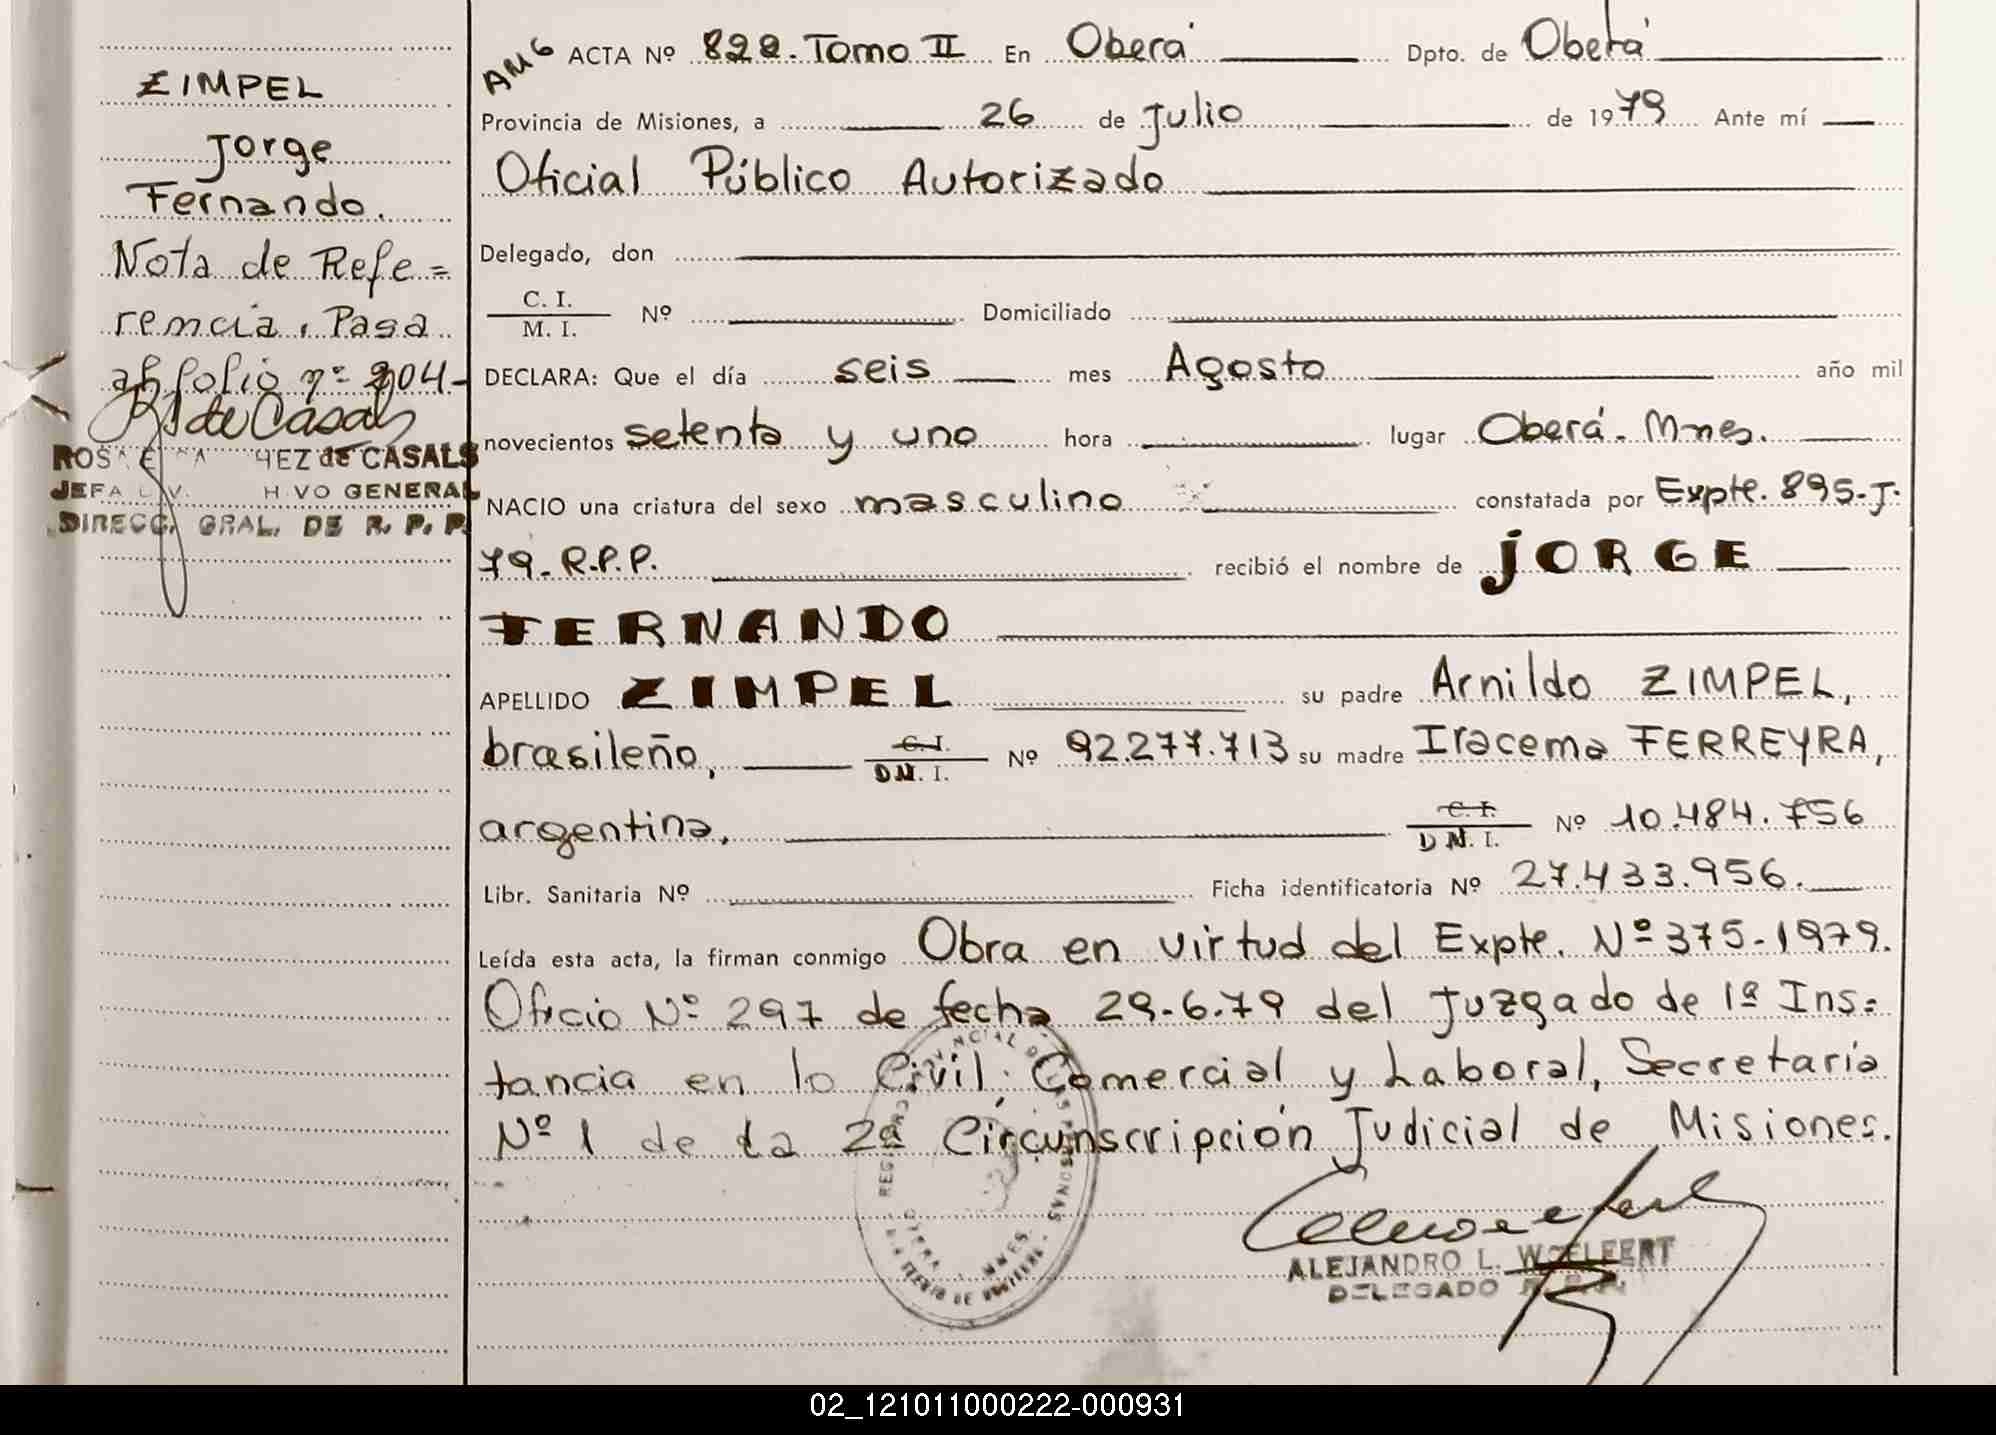 ZIMPEL
Jorge
Fernando.
Nota de Refe=
rencia, Pasa
al folio nº 204-
R S de Casals
DE CASALS
JEFA GENERAL
DIRECC. GRAL. DE R. P. P.
AM6 ACTA Nº 822. Tomo II En Oberá Dpto. de Oberá
Provincia de Misiones, a 26 de Julio de 1979 Ante mí
Oficial Público Autorizado
Delegado, don
C. I.
M. I. Nº Domiciliado
DECLARA: Que el día seis mes Agosto año mil
novecientos setenta y uno hora lugar Oberá. Mnes.
NACIO una criatura del sexo masculino constatada por Expte. 895-J-
79-R.P.P. recibió el nombre de JORGE
FERNANDO
APELLIDO ZIMPEL su padre Arnildo ZIMPEL,
brasileño, C.I. D.N.I. Nº 92.277.713 su madre Iracema FERREYRA,
argentina, C.I. D.N.I. Nº 10.484.756
Libr. Sanitaria Nº Ficha identificatoria Nº 27.433.956.
Leída esta acta, la firman conmigo Obra en virtud del Expte. Nº 375-1979.
Oficio Nº 297 de fecha 29-6-79 del Juzgado de 1ª Ins=
tancia en lo Civil, Comercial y Laboral, Secretaría
Nº 1 de la 2ª Circunscripción Judicial de Misiones.
ALEJANDRO L. WOELFERT
DELEGADO R.P.P.
02_121011000222-000931